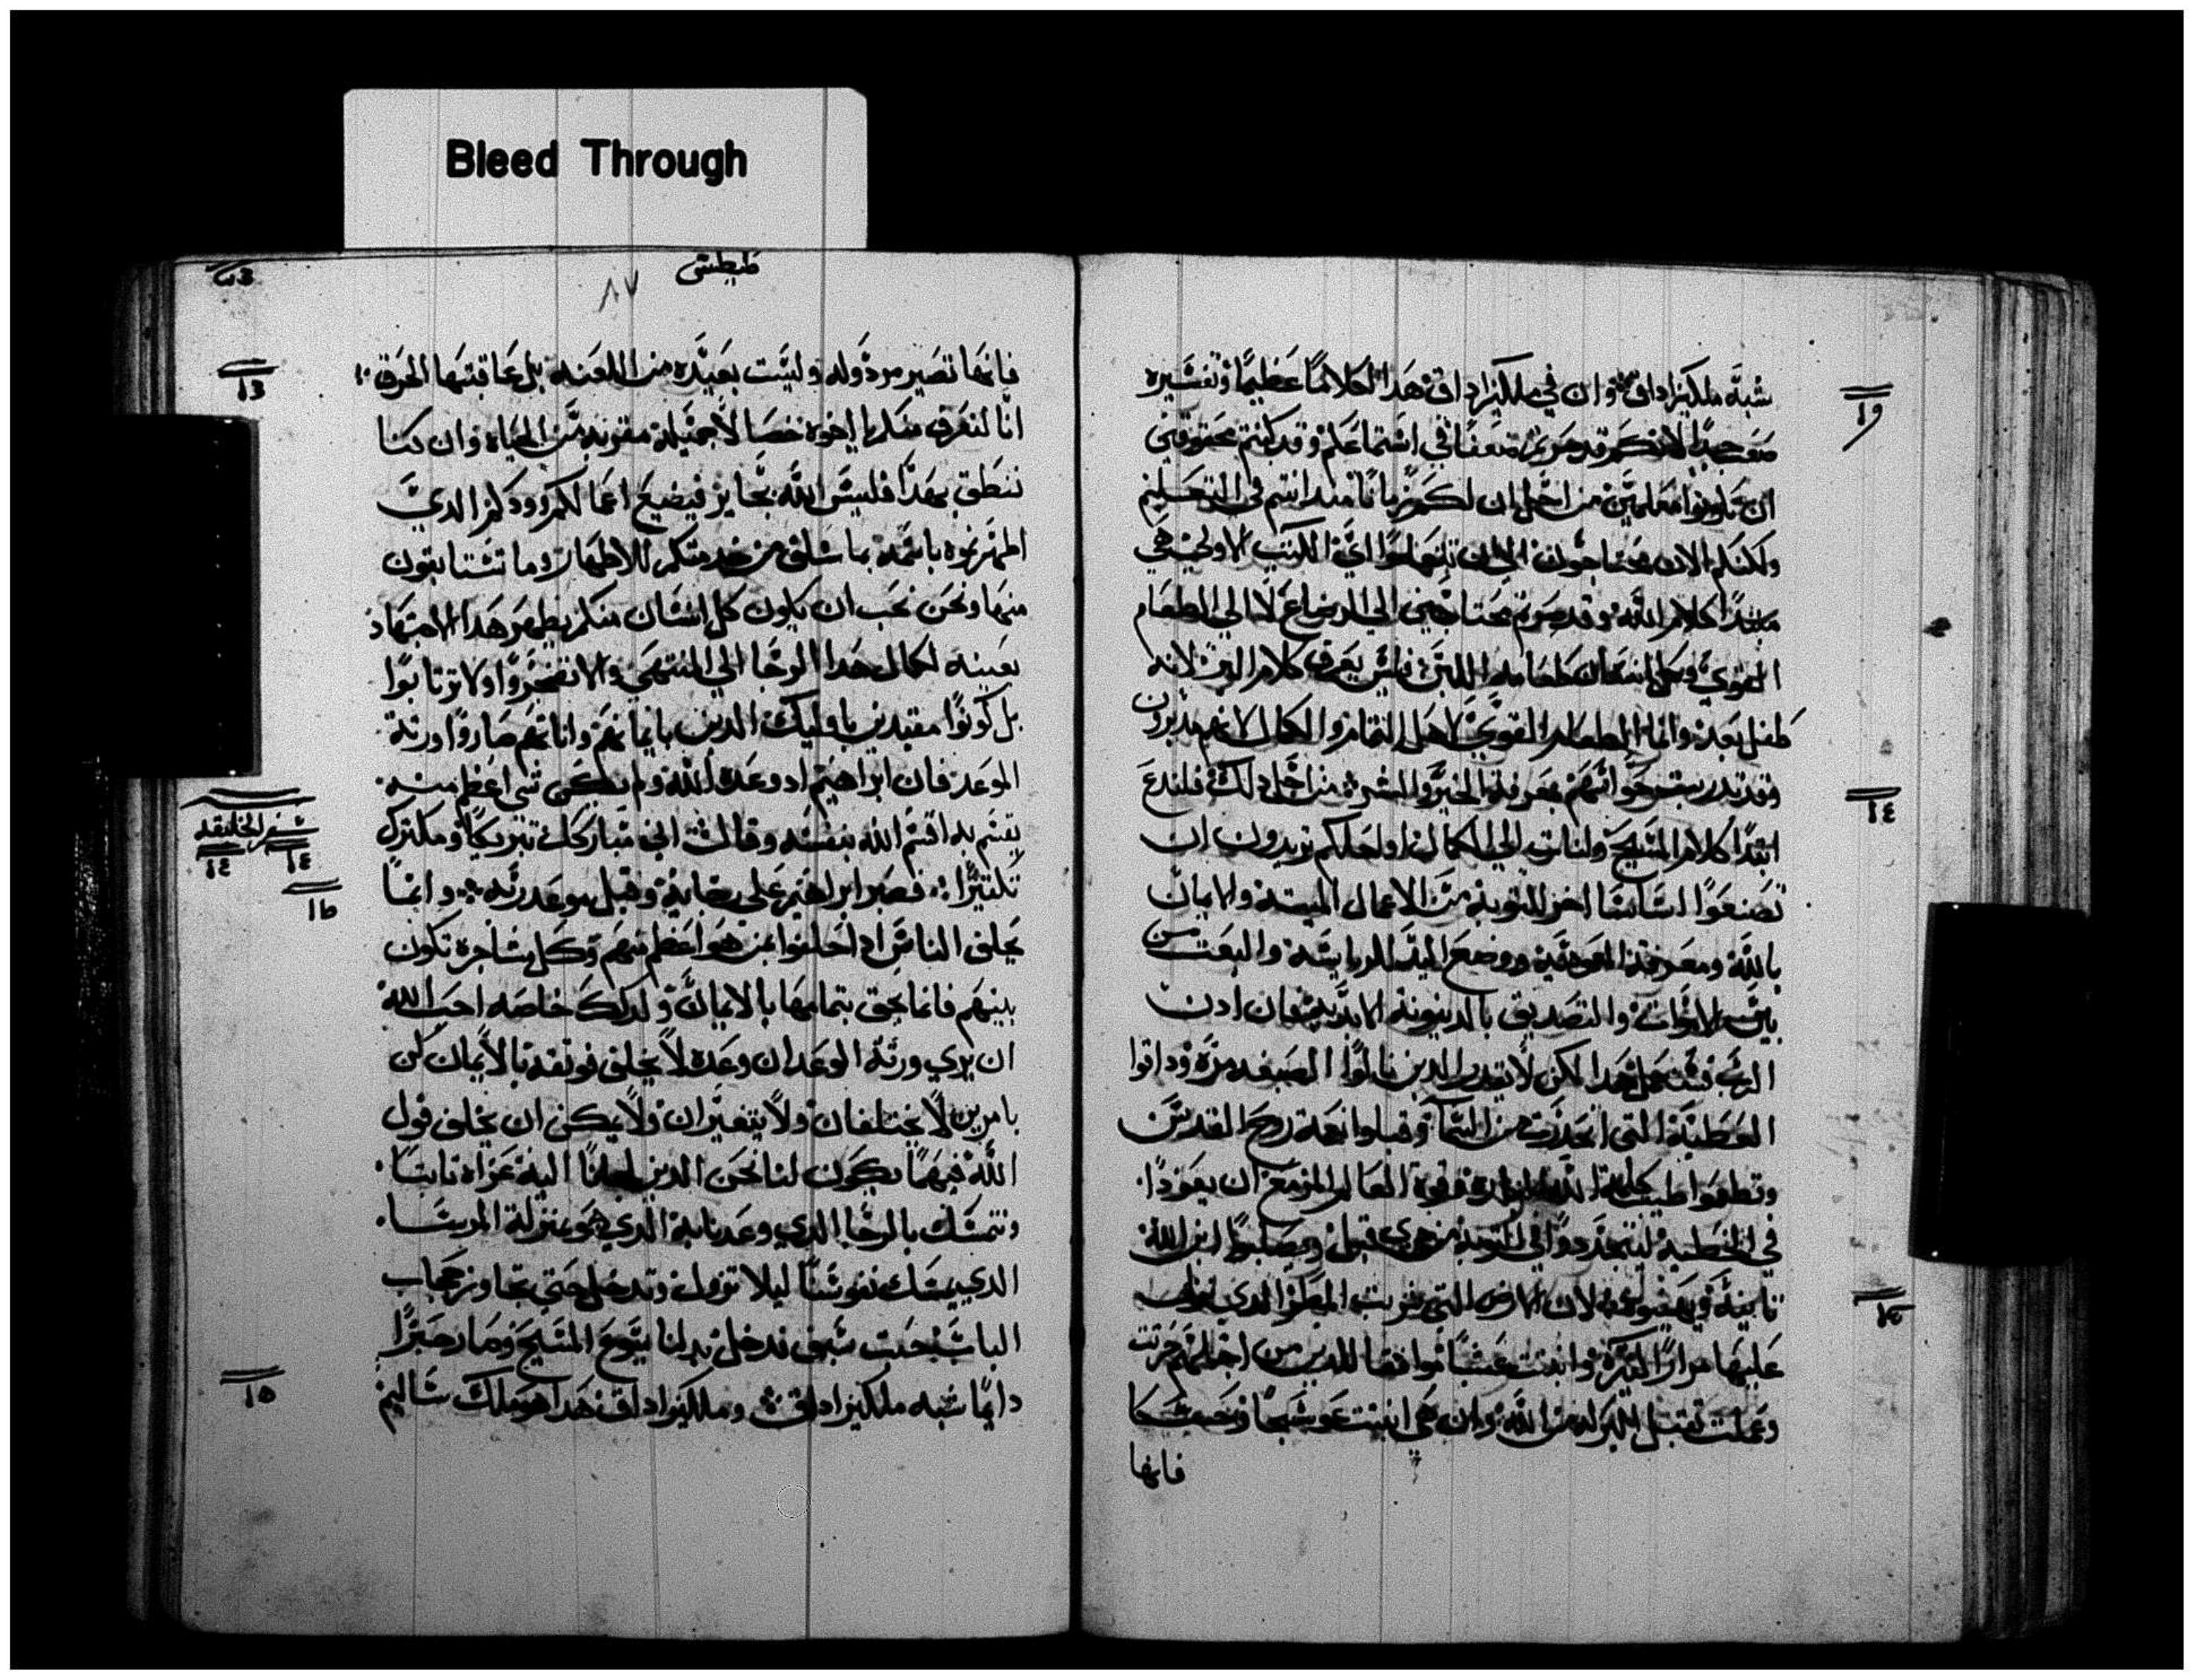 Bleed Through
شبه ملكيزاداق وان في ملكيزاداق هدا لكلامًا عظيمًا وتفسيره
لانكم قد في استماعكم وقد كنتم محقوقين
ان تكونوا معلمين من اجل ان لكم زمانًا مند انتم في التعليم
ولكنكم الان محتاجون الي ان تتعلموا اي الكتب الاولي هي
مبتدا كلام الله وقد صرتم محتاجين الي الرضاع لا الي الطعام
القوي وكل انسان طعامه اللبن فليس يعرف كلام البر لانه
طفل بعد واما الطعام القوي لاهل التمام والكمال لانهم مدربون
وقد تدربت حواسهم بمعرفة الخير والشر من اجل دلك فلندع
ابتدا كلام المسيح ولنات الي الكمال او لعلكم تريدون ان
تصنعوا اساسًا اخر للتوبة من الاعمال الميتة والايمان
بالله ومعرفة المعمودية ووضع اليد للرياسة والبعث من
بين الاموات والتصديق بالدينونة الابدية فان ادن
الرب فسنعمل هدا لكن لا يقدر الدين نالوا الصبغه مرة وداقوا
العطية التي انحدرت من السما وقبلوا نعمة روح القدس
وتطعموا طيب كلمة الله وقوة العالم المزمع ان يعودوا
في الخطية ليتجددوا في التوبة من دي قبل ويصلبوا ابن الله
تانية ويهينوه لان الارض التي شربت المطر الدي نزل
عليها مرارًا كتيرة وانبتت عشبًا موافقا للدين من اجلهم حرتت
وعملت تقبل البركه من الله وان هي انبتت عوسجًا وحسكا
فانها
طيطس
٨٧
فانها تصير مردوله وليست بعيده من اللعنه بل عاقبتها الحرق
انا لنعرف منكم يا اخوه خصالا جميلة مقربة من الحياه وان كنا
ننطق بهدا فليس الله بجاير فيضيع اعمالكم وودكم الدي
اظهرتموه باسمه بما سلف من خدمتكم للاطهار وما تستانفون
منها ونحن نحب ان يكون كل انسان منكم يظهر هدا الاجتهاد
بعينه لكمال هدا الرجا الي المنتهي والا تضجروا ولا ترتابوا
بل كونوا مقتدين باوليك الدين بايمانهم واناتهم صاروا ورتة
الموعد فان ابراهيم اد وعده الله ولم يكن شي اعظم منه
يقسم به اقسم الله بنفسه وقال اني مباركك تبريكًا ومكترك
تكتيرًا فصبر ابراهيم علي رجايه وقبل موعد ربه وانما
يحلف الناس ادا حلفوا بمن هو اعظم منهم وكل مشاجرة تكون
بينهم فانما يحق بتمامها بالايمان ولدلك خاصه احب الله
ان يري ورتة الوعد ان وعده لا يخلف فوتقه بالايمان لكن
بامرين لا يختلفان ولا يتغيران ولا يمكن ان يخلف قول
الله فيهما يكون لنا نحن الدين لجانا اليه عزاه تابتا
ونتمسك بالرجا الدي وعدنا به الدي هو بمنزلة المرسا
الدي يمسك نفوسنا ليلا تزول وتدخل حتي تجاوز حجاب
الباب حيت سبق فدخل بدلنا يسوع المسيح وصار حبرًا
دايمًا شبه ملكيزاداق وملكيزاداق هدا هو ملك ساليم
سفر الخليقه